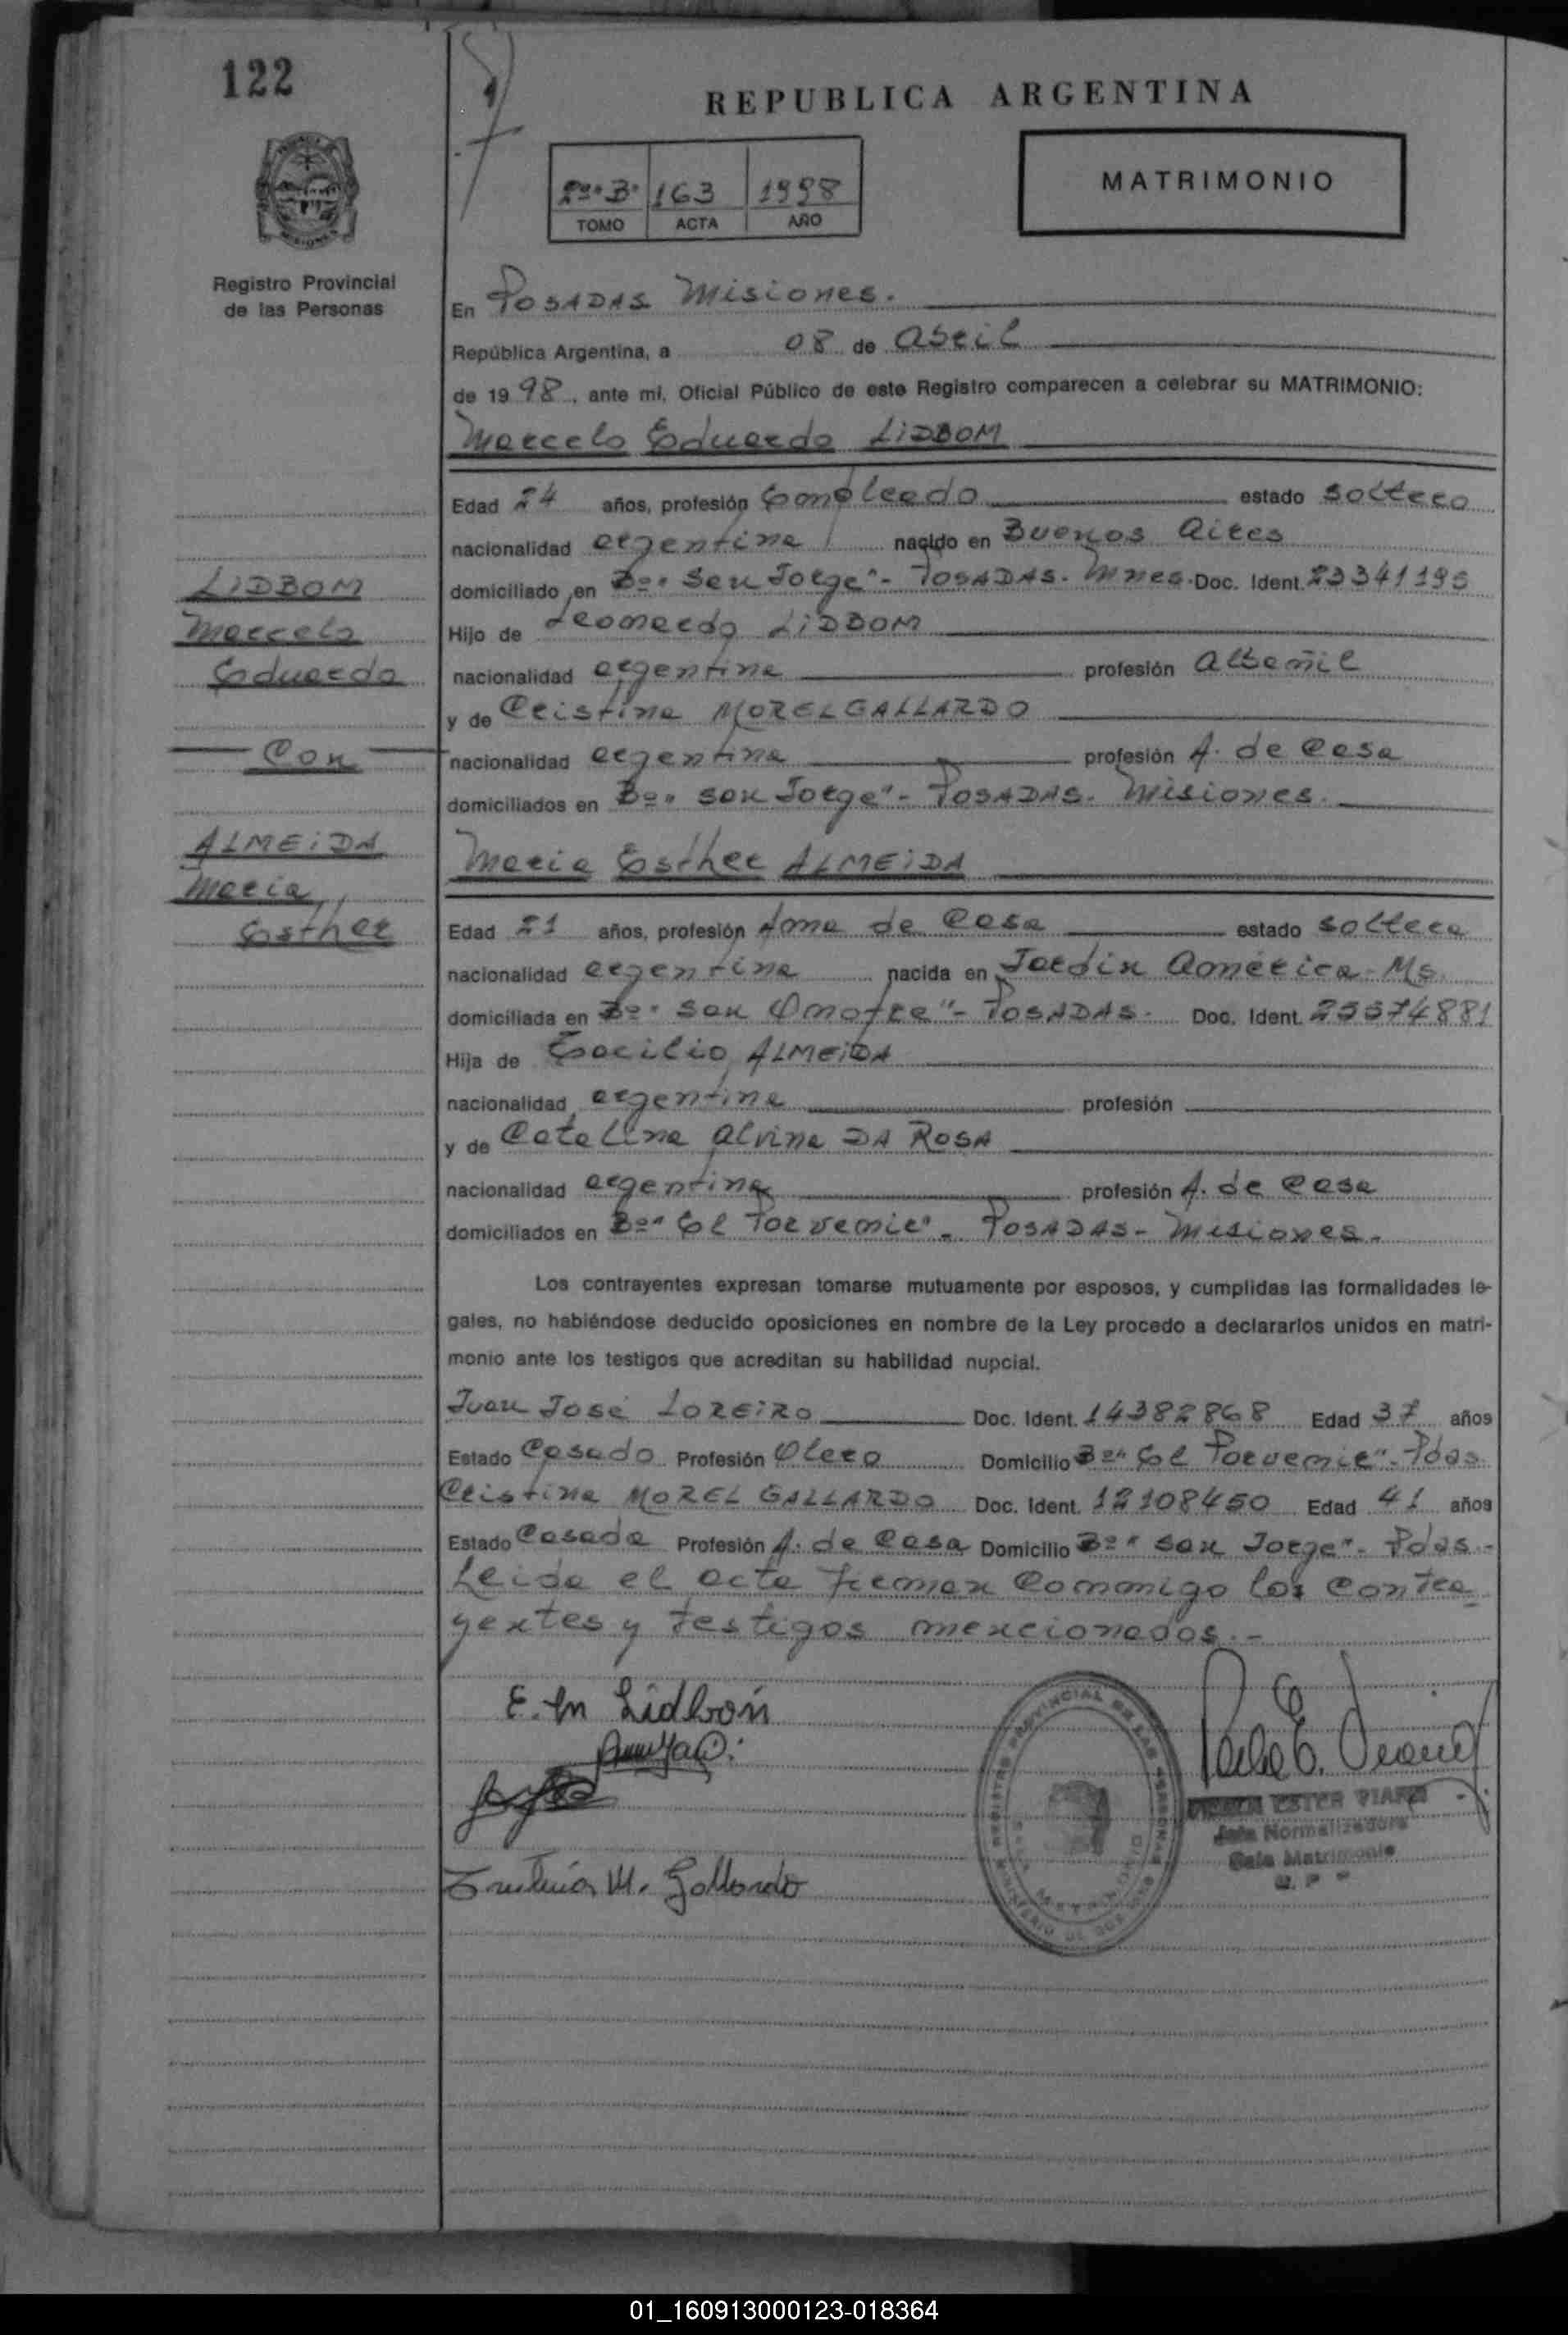 122
REPUBLICA ARGENTINA
2do B 163 1998
TOMO ACTA AÑO
MATRIMONIO
Registro Provincial
de las Personas
En POSADAS Misiones.
República Argentina, a 08 de Abril
de 1998, ante mi, Oficial Público de este Registro comparecen a celebrar su MATRIMONIO:
Marcelo Eduardo LIDBOM
Edad 24 años, profesión Empleado estado soltero
nacionalidad argentina nacido en Buenos Aires
domiciliado en Bº "San Jorge" - POSADAS - Mnes. Doc. Ident. 23341195
Hijo de Leonardo LIDBOM
nacionalidad argentina profesión Albañil
y de Cristina MOREL GALLARDO
nacionalidad argentina profesión A. de Casa
domiciliados en Bº "San Jorge" - POSADAS - Misiones.
LIDBOM
Marcelo
Eduardo
Con
ALMEIDA
Maria
Esther
Maria Esther ALMEIDA
Edad 21 años, profesión Ama de Casa estado soltera
nacionalidad argentina nacida en Jardin América - Ms.
domiciliada en Bº "San Onofre" - POSADAS. Doc. Ident. 25574881
Hija de Ecocilio ALMEIDA
nacionalidad argentina profesión
y de Catalina Alvina DA ROSA
nacionalidad argentina profesión A. de Casa
domiciliados en Bº "El Porvenir" - POSADAS - Misiones.
Los contrayentes expresan tomarse mutuamente por esposos, y cumplidas las formalidades le-
gales, no habiéndose deducido oposiciones en nombre de la Ley procedo a declararlos unidos en matri-
monio ante los testigos que acreditan su habilidad nupcial.
Juan José LOREIRO Doc. Ident. 14382868 Edad 37 años
Estado Casado Profesión Olero Domicilio Bº "El Porvenir" - Pdas.
Cristina MOREL GALLARDO Doc. Ident. 12108450 Edad 41 años
Estado Casada Profesión A. de Casa Domicilio Bº "San Jorge" - Pdas.-
Leida el acta firman conmigo los contra_
yentes y testigos mencionados.-
E. M Lidbon
M. Gallardo
REGISTRO PROVINCIAL DE LAS PERSONAS
ESTER VIANA
Jefa Normalizadora
Sala Matrimonio
01_160913000123-018364